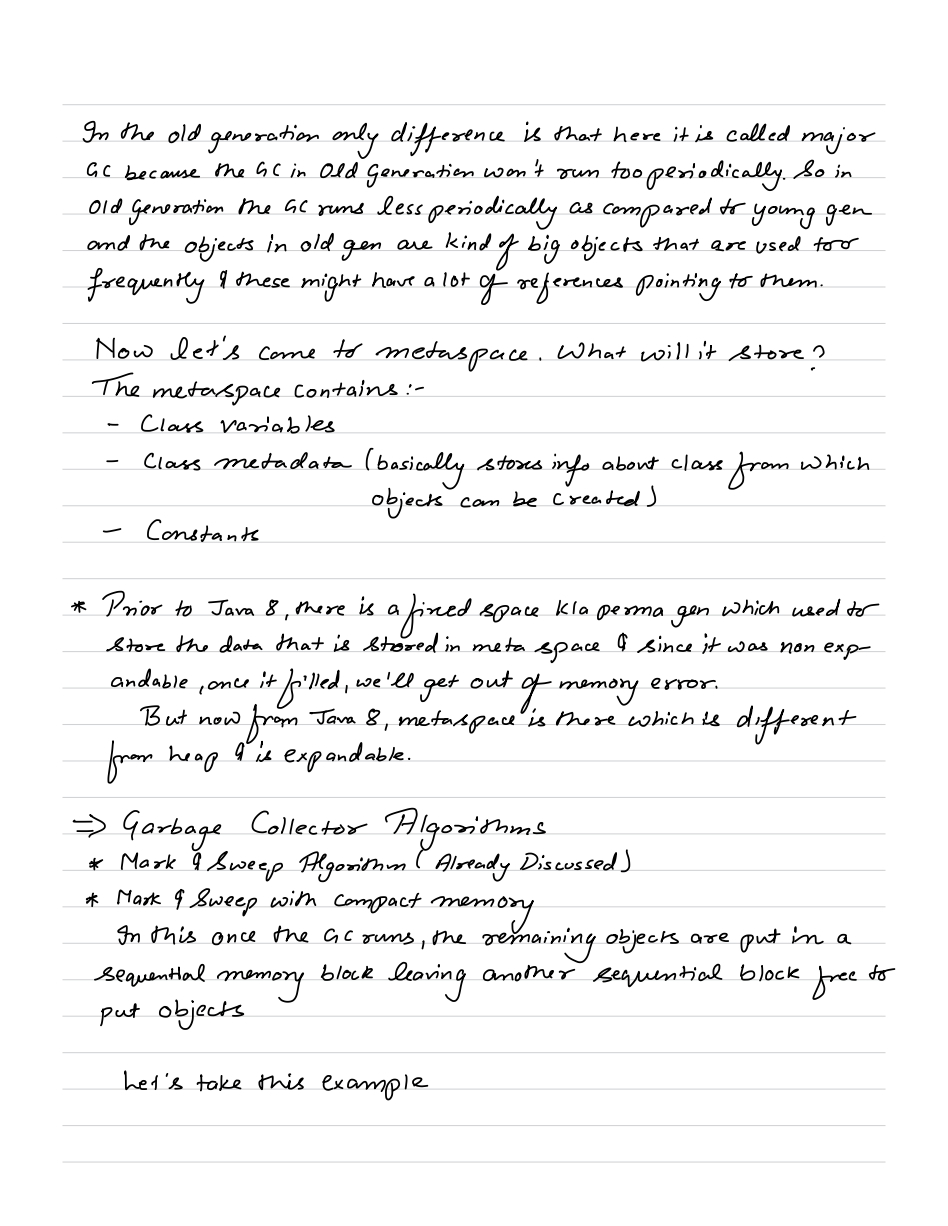 In the old generation only difference is that here it is called major
GC because the GC in Old Generation won't run too periodically. So in
Old Generation the GC runs less periodically as compared to young gen
and the objects in old gen are kind of big objects that are used too
frequently & these might have a lot of references pointing to them.
Now let's come to metaspace. What will it store?
The metaspace contains:-
- Class variables
- Class metadata (basically stores info about class from which
objects can be created)
- Constants
* Prior to Java 8, there is a fixed space k/a perma gen which used to
store the data that is stored in meta space & since it was non exp-
andable, once it filled, we'll get out of memory error.
But now from Java 8, metaspace is there which is different
from heap & is expandable.
⇒ Garbage Collector Algorithms
* Mark & Sweep Algorithm (Already Discussed)
* Mark & Sweep with compact memory
In this once the GC runs, the remaining objects are put in a
sequential memory block leaving another sequential block free to
put objects
Let's take this example